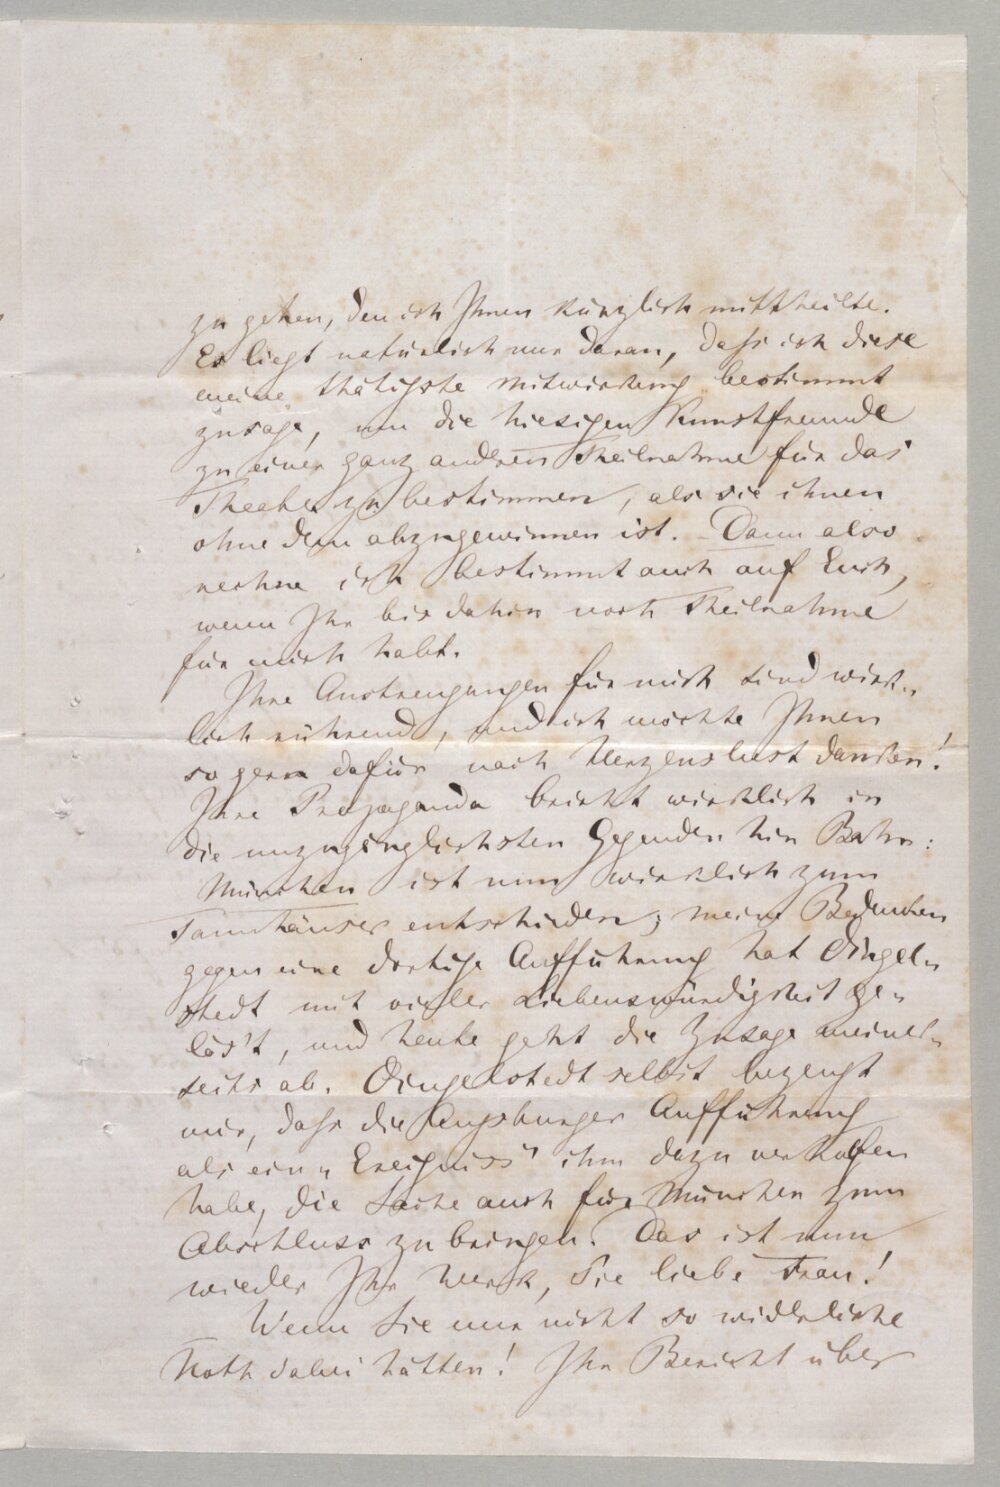 zu gehen, den ich Ihnen kürzlich mittheilte.
Es liegt natürlich nur daran, dass ich diese
meine thätigste Mitwirkung bestimmt
zusage, um die hiesigen Kunstfreunde
zu einer ganz anderen Theilnahme für das
Theater zu bestimmen, als sie ihnen
ohne dem abzugewinnen ist. - Dann also
rechne ich bestimmt auch auf Euch,
wenn Ihr bis dahin noch Theilnahme
für mich habt.
Ihre Anstrengungen für mich sind wirk-
lich rührend, und ich möchte Ihnen
so gern dafür nach Herzenslust danken!
Ihre Propaganda bricht wirklich in
die unzugänglichsten Gegenden hin Bahn:
München ist nun wirklich zum
Tannhäuser entschieden; meine Bedenken
gegen eine dortige Aufführung hat Dingel-
stedt mit vieler Liebenswürdigkeit ge-
lös't, und heute geht die Zusage meiner-
seits ab. Dingelstedt selbst bezeugt
mir, dass die Augsburger Aufführung
als ein „Ereigniss" ihm dazu verholfen
habe, die Sache auch für München zum
Abschluss zu bringen. Das ist nun
wieder Ihr Werk, Sie liebe Frau!
Wenn Sie nur nicht so widerliche
Noth dabei hätten! Ihr Bericht über